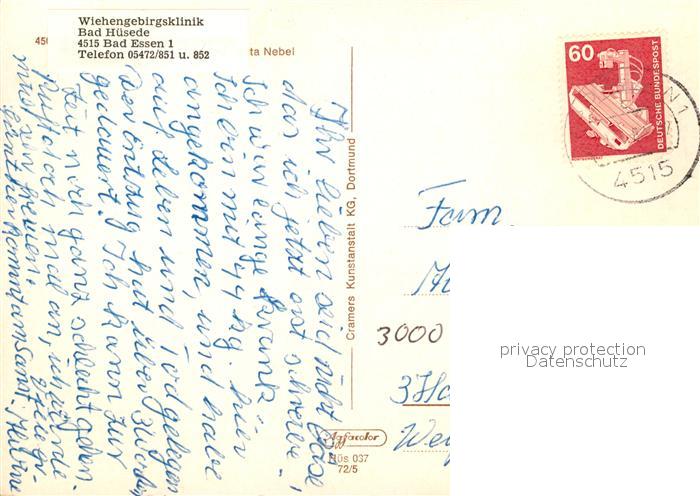 Wiehengebirgsklinik
Bad Hüsede
4515 Bad Essen 1
Telefon 05472/851 u. 852
450
ta Nebel
Ihr Lieben seid nicht böse,
das ich jetzt erst schreibe,
Ich war lange krank.
Ich bin mit 44 kg. hier
angekommen, und habe
auf Leben und Tod gelegen
der Entzug hat über
gedauert. Ich kann zur
Zeit noch ganz schlecht gehen.
Ruft doch mal an, ich würde
mich sehr freuen.
Cramers Kunstanstalt KG, Dortmund
Agfacolor
Hüs 037
72/5
60
DEUTSCHE BUNDESPOST
N 1
4515
Fam
3000
3 Ha
privacy protection
Datenschutz